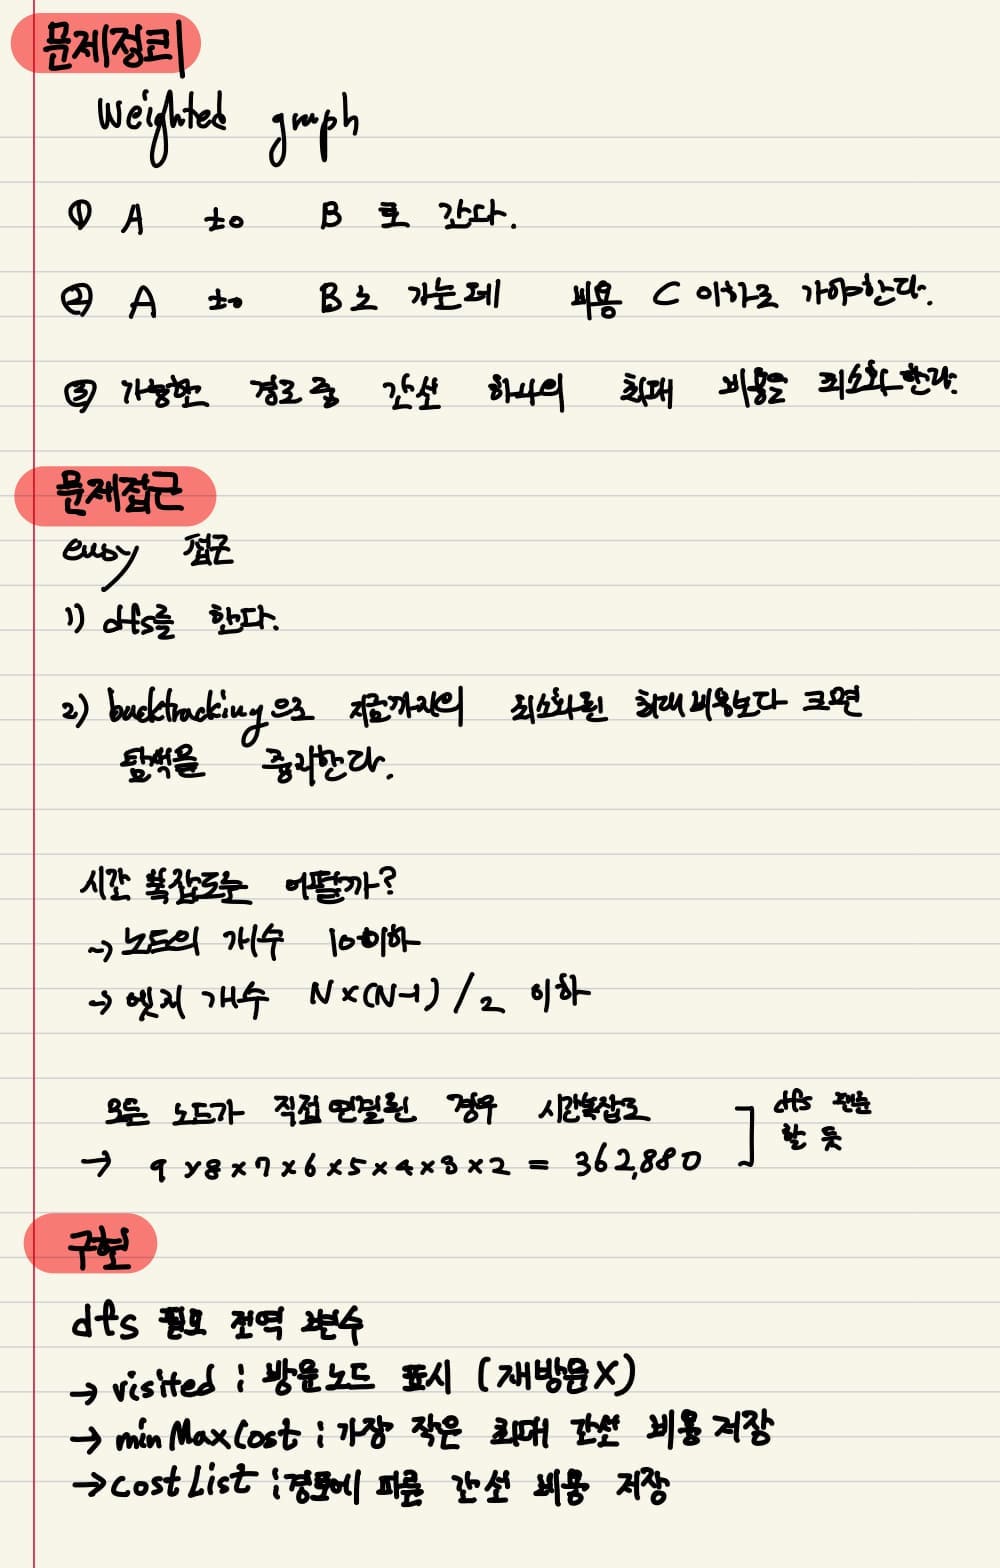 문제정리
Weighted graph
① A to B 로 간다.
② A to B로 가는데 비용 C 이하로 가야한다.
③ 가능한 경로 중 간선 하나의 최대 비용을 최소화 한다.
문제접근
easy 접근
1) dfs를 한다.
2) backtracking으로 지금까지의 최소화된 최대 비용보다 크면
탐색을 중지한다.
시간 복잡도는 어떨까?
→ 노드의 개수 10이하
→ 엣지 개수 N×(N-1)/2 이하
모든 노드가 직접 연결된 경우 시간복잡도
→ 9×8×7×6×5×4×3×2 = 362,880
dfs 만으로
할 듯
구현
dfs 필요 전역 변수
→ visited : 방문노드 표시 (재방문X)
→ minMaxCost : 가장 작은 최대 간선 비용 저장
→ costList : 경로에 따른 간선 비용 저장